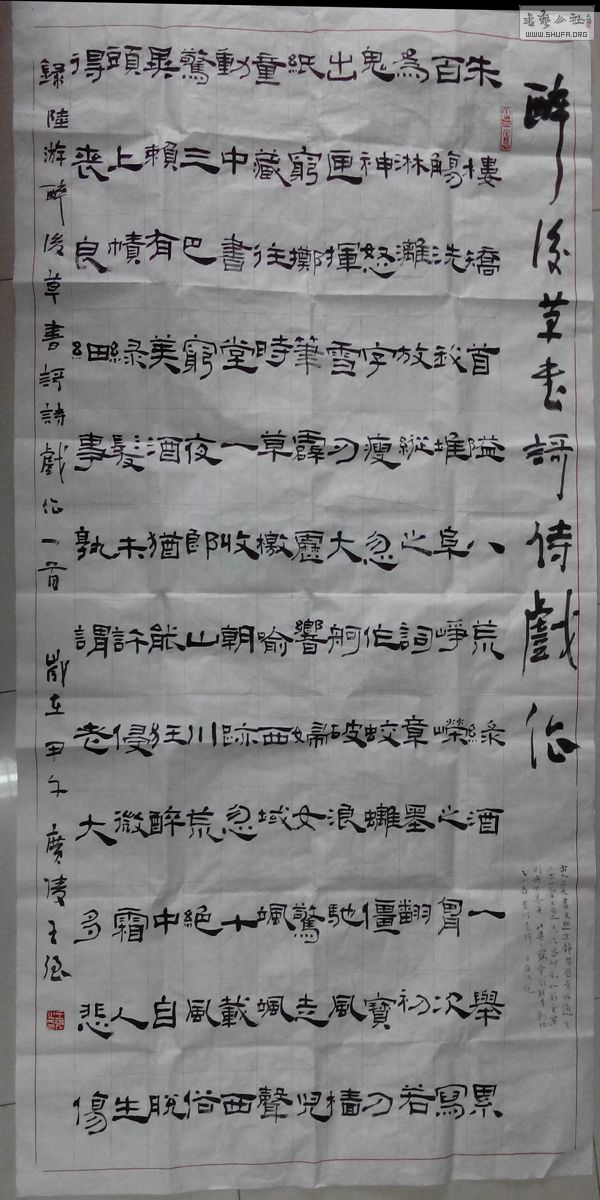 醉後草書謌詩戲作
朱樓矯首隘八荒綠酒一舉累
百觴洗我堆阜崢嶸之胷次寫
為淋灕放縱之詞章墨翻初若
鬼神怒字瘦忽作蛟螭僵寶刀
出匣揮雪刃大舸破浪馳風檣
紙窮擲筆霹靂響婦女驚走兒
童藏往時草檄喻西域颯颯聲
動中書堂一收朝跡忽十載西
驚三巴窮夜郎山川荒絕風俗
異賴有美酒猶能狂醉中自脫
頭上幘綠髮未許侵微霜人生
得喪良細事孰謂老大多悲傷
錄陸游醉後草書謌詩戲作一首 歲在甲午 廣陵王強
書藝公社
WWW.SHUFA.ORG